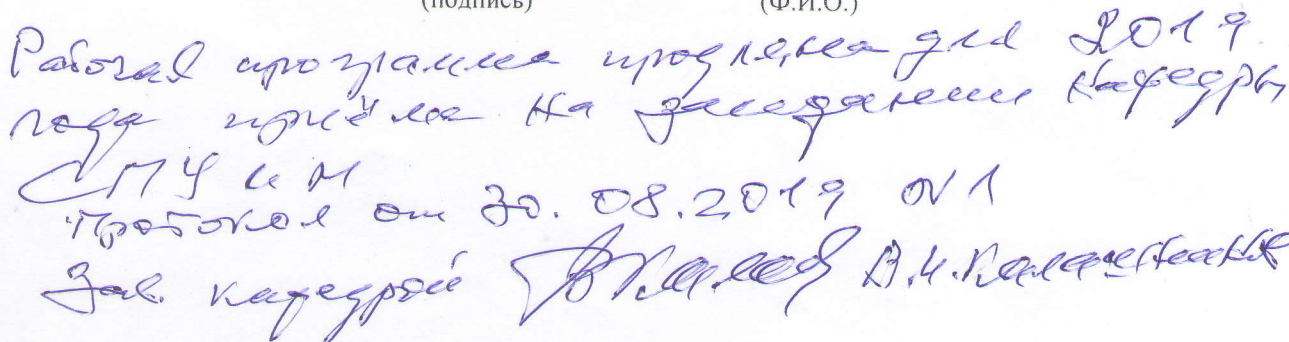 (подпись) (Ф.И.О.)
Рабочая программа продлена для 2019
года приёма на заседании кафедры
СПУ и М
Протокол от 30.08.2019 №1
Зав. кафедрой В.И.